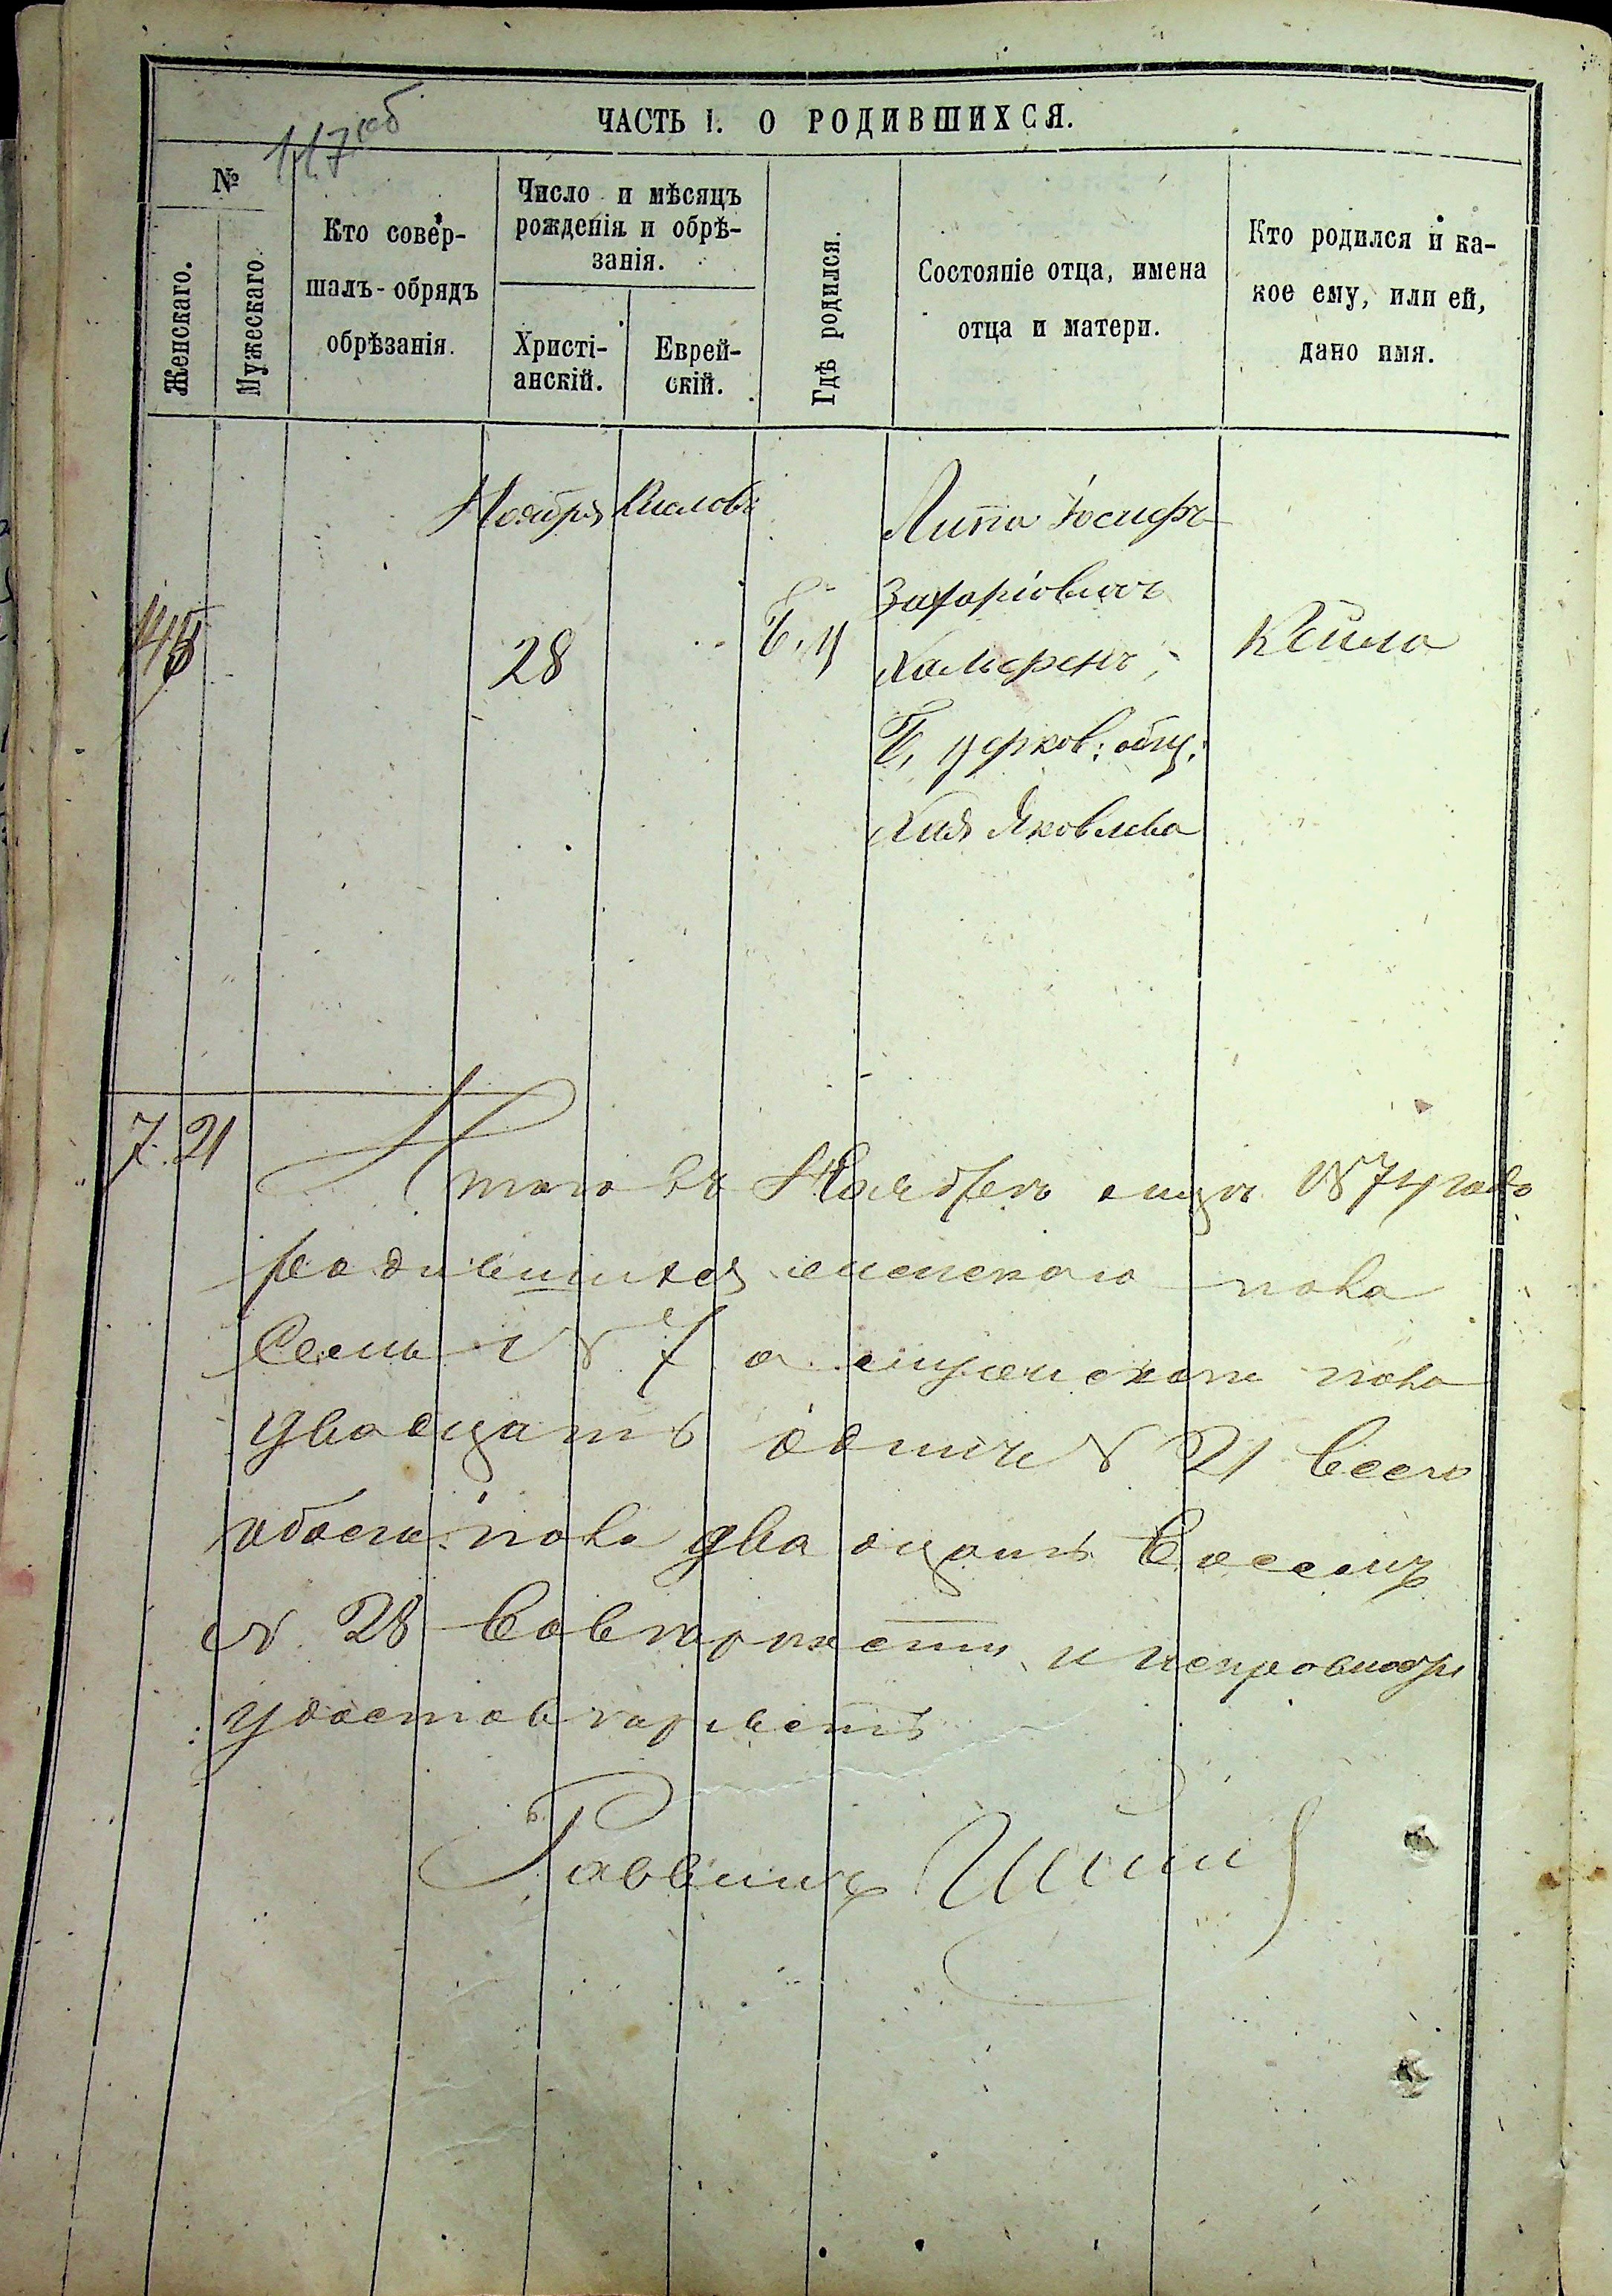 117 об
ЧАСТЬ I. О РОДИВШИХСЯ.
№
Женскаго.
Мужескаго.
Кто совер-
шалъ-обрядъ
обрѣзанія.
Число и мѣсяцъ
рожденія и обрѣ-
занія.
Христі-
анскій.
Еврей-
скій.
Гдѣ родился.
Состояніе отца, имена
отца и матери.
Кто родился и ка-
кое ему, или ей,
дано имя.
Ноября
28
Б. Ц
Липа Іосифъ
Захаріовичъ
Б. церков: общ:
Хая Яковлева
Кейла
7. 21
Итого въ Ноябрѣ 1874 года
родившихся женскаго пола
Семь № 7 а мужескаго пола
двадцать одинъ № 21 всего
обоего пола двадцать восемь
№ 28
удостовѣряетъ
Раввинъ